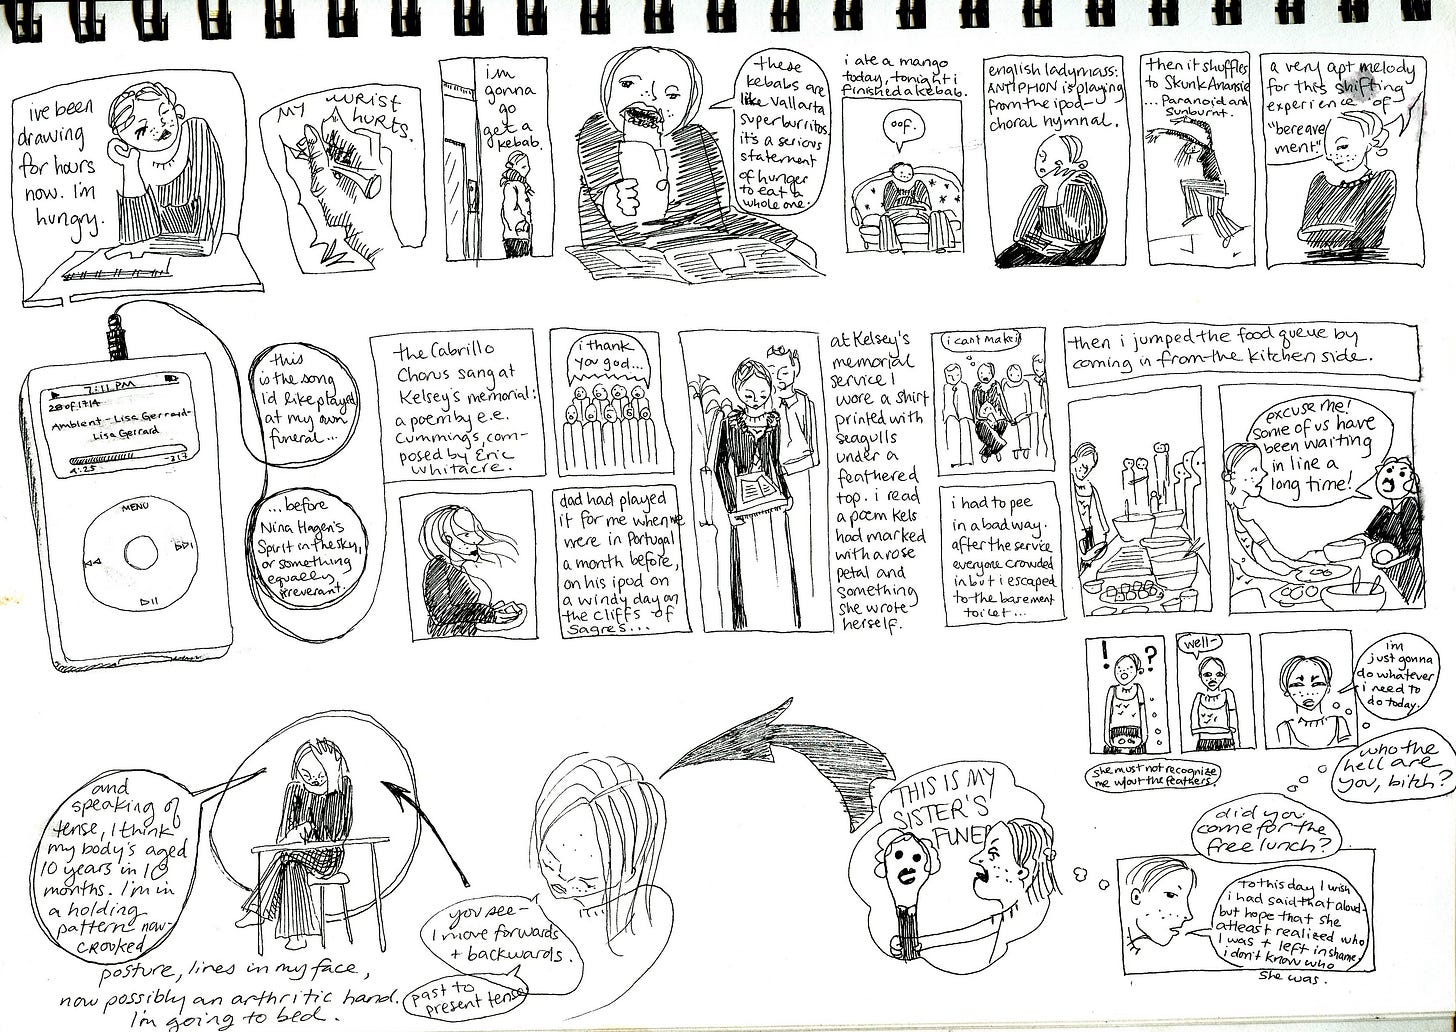 ive been
drawing
for hours
now. i'm
hungry.
MY WRIST
HURTS.
im
gonna
go
get a
kebab.
these
kebabs are
like Vallarta
superburritos.
it's a serious
statement
of hunger
to eat a
whole one.
i ate a mango
today, tonight i
finished a kebab.
oof.
english ladymass:
ANTIPHON is playing
from the ipod-
choral hymnal.
then it shuffles
to Skunk Anansie
... Paranoid and
Sunburnt.
a very apt melody
for this shifting
experience of
"bereave
ment"
7:11 PM
28 of 1714
Ambient - Lisa Gerrard-
Lisa Gerrard
4:25
-2:17
MENU
this
is the song
i'd like played
at my own
funeral...
...before
Nina Hagen's
Spirit in the sky,
or something
equally
irreverant.
the Cabrillo
Chorus sang at
Kelsey's memorial:
a poem by e.e.
Cummings, com-
posed by Eric
Whitacre.
i thank
you god...
dad had played
it for me when we
were in Portugal
a month before,
on his ipod on
a windy day on
the cliffs of
Sagres...
at Kelsey's
memorial
service I
wore a shirt
printed with
seagulls
under a
feathered
top. i read
a poem Kels
had marked
with a rose
petal and
something
she wrote
herself.
i cant make it
i had to pee
in a bad way.
after the service
everyone crowded
in but i escaped
to the basement
toilet...
then i jumped the food queue by
coming in from the kitchen side.
excuse me!
some of us have
been waiting
in line a
long time!
! ?
well-
im
just gonna
do whatever
i need to
do today.
she must not recognize
me w/out the feathers.
who the
hell are
you, bitch?
did you
come for the
free lunch?
to this day I wish
i had said that aloud-
but hope that she
atleast realized who
I was + left in shame.
i don't know who
she was.
THIS IS MY
SISTER'S
FUNE
you see-
I move forwards
+ backwards.
past to
present tense
and
speaking of
tense, I think
my body's aged
10 years in 10
months. I'm in
a holding
pattern now-
crooked
posture, lines in my face,
now possibly an arthritic hand.
I'm going to bed.